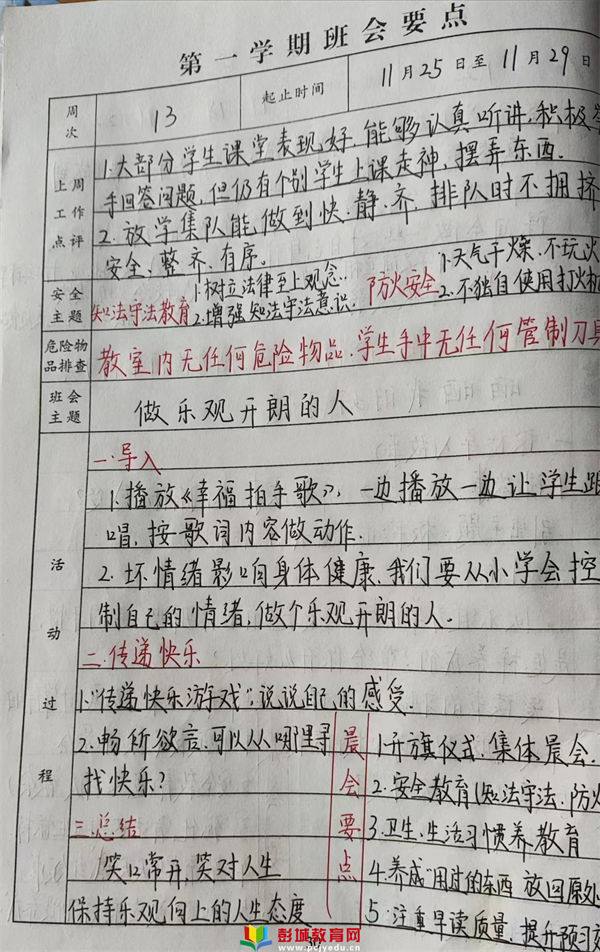 第一学期班会要点
周次 13 起止时间 11月25日至11月29日
上周工作点评
1.大部分学生课堂表现好,能够认真听讲,积极
手回答问题,但仍有个别学生上课走神,摆弄东西.
2.放学集队能做到快、静、齐,排队时不拥挤
安全、整齐、有序.
安全主题
知法守法教育
1.树立法律至上观念.
2.增强知法守法意识.
防火安全
1.天气干燥,不玩火
2.不独自使用打火机
危险物品排查
教室内无任何危险物品.学生手中无任何管制刀具
班会主题
做乐观开朗的人
活动过程
一.导入
1.播放《幸福拍手歌》,一边播放一边让学生跟
唱,按歌词内容做动作.
2.坏情绪影响身体健康,我们要从小学会控
制自己的情绪,做个乐观开朗的人.
二.传递快乐
1."传递快乐游戏",说说自己的感受.
2.畅所欲言,可以从哪里寻
找快乐?
三.总结
笑口常开,笑对人生
保持乐观向上的人生态度
晨会要点
1.升旗仪式.集体晨会.
2.安全教育(知法守法.防火
3.卫生.生活习惯养教育
4.养成"用过的东西 放回原处
5.注重早读质量,提升预习
彭城教育网
www.pcjyedu.cn